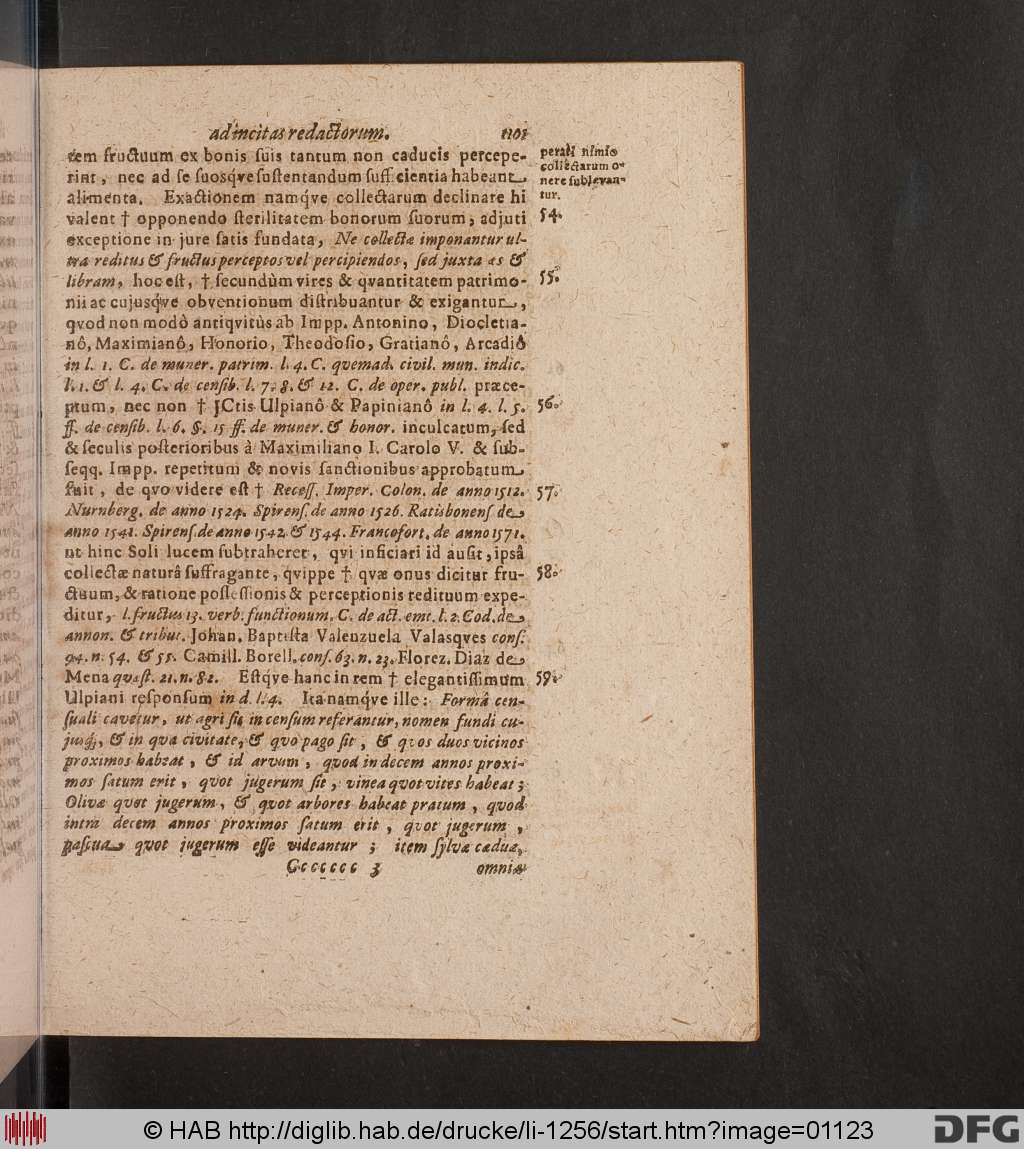 ad incitas redactorum. 1101
tem fructuum ex bonis suis tantum non caducis percepe-
rint, nec ad se suosqve sustentandum sufficientia habeant
alimenta. Exactionem namqve collectarum declinare hi
valent † opponendo sterilitatem bonorum suorum, adjuti
exceptione in jure satis fundata, Ne collectæ imponantur ul-
tra reditus & fructus perceptos vel percipiendos, sed juxta as &
libram, hoc est, † secundùm vires & qvantitatem patrimo-
nii ac cujusqve obventionum distribuantur & exigantur,
qvod non modò antiqvitùs ab Impp. Antonino, Diocletia-
nô, Maximianô, Honorio, Theodosio, Gratianô, Arcadiô
in l. 1. C. de muner. patrim. l. 4. C. quemad. civil. mun. indic.
l. 1. & l. 4. C. de censib. l. 7. 8. & 12. C. de oper. publ. præce-
ptum, nec non † JCtis Ulpianô & Papinianô in l. 4. l. 5.
ff. de censib. l. 6. §. 15 ff. de muner. & honor. inculcatum, sed
& seculis posterioribus à Maximiliano I. Carolo V. & sub-
seqq. Impp. repetitum & novis sanctionibus approbatum
fuit, de qvo videre est † Recess. Imper. Colon. de anno 1512.
Nurnberg. de anno 1524. Spirens. de anno 1526. Ratisbonens. de
anno 1541. Spirens. de anno 1542 & 1544. Francofort. de anno 1571.
ut hinc Soli lucem subtraheret, qvi inficiari id ausit, ipsâ
collectæ naturâ suffragante, qvippe † qvæ onus dicitur fru-
ctuum, & ratione possessionis & perceptionis redituum expe-
ditur, l. fructus 13. verb. functionum. C. de act. emt. l. 2. Cod. de
annon. & tribut. Johan. Baptista Valenzuela Valasqves cons.
94. n. 54. & 55. Camill. Borell. cons. 63. n. 23. Florez. Diaz de
Mena quæst. 21. n. 82. Estqve hanc in rem † elegantissimum
Ulpiani responsum in d. l. 4. Ita namqve ille: Formâ cen-
suali cavetur, ut agri sic in censum referantur, nomen fundi cu-
jusq;, & in qua civitate, & quo pago sit, & quos duos vicinos
proximos habeat, & id arvum, quod in decem annos proxi-
mos satum erit, quot jugerum sit, vinea quot vites habeat;
Olivæ quot jugerum, & quot arbores habeat pratum, quod
intra decem annos proximos satum erit, quot jugerum,
pascua quot jugerum esse videantur; item sylvæ cæduæ,
Ccccccc 3 omnia
perati nimio
collectarum o-
nere sublevan-
tur.
54.
55.
56.
57.
58.
59.
© HAB http://diglib.hab.de/drucke/li-1256/start.htm?image=01123
DFG